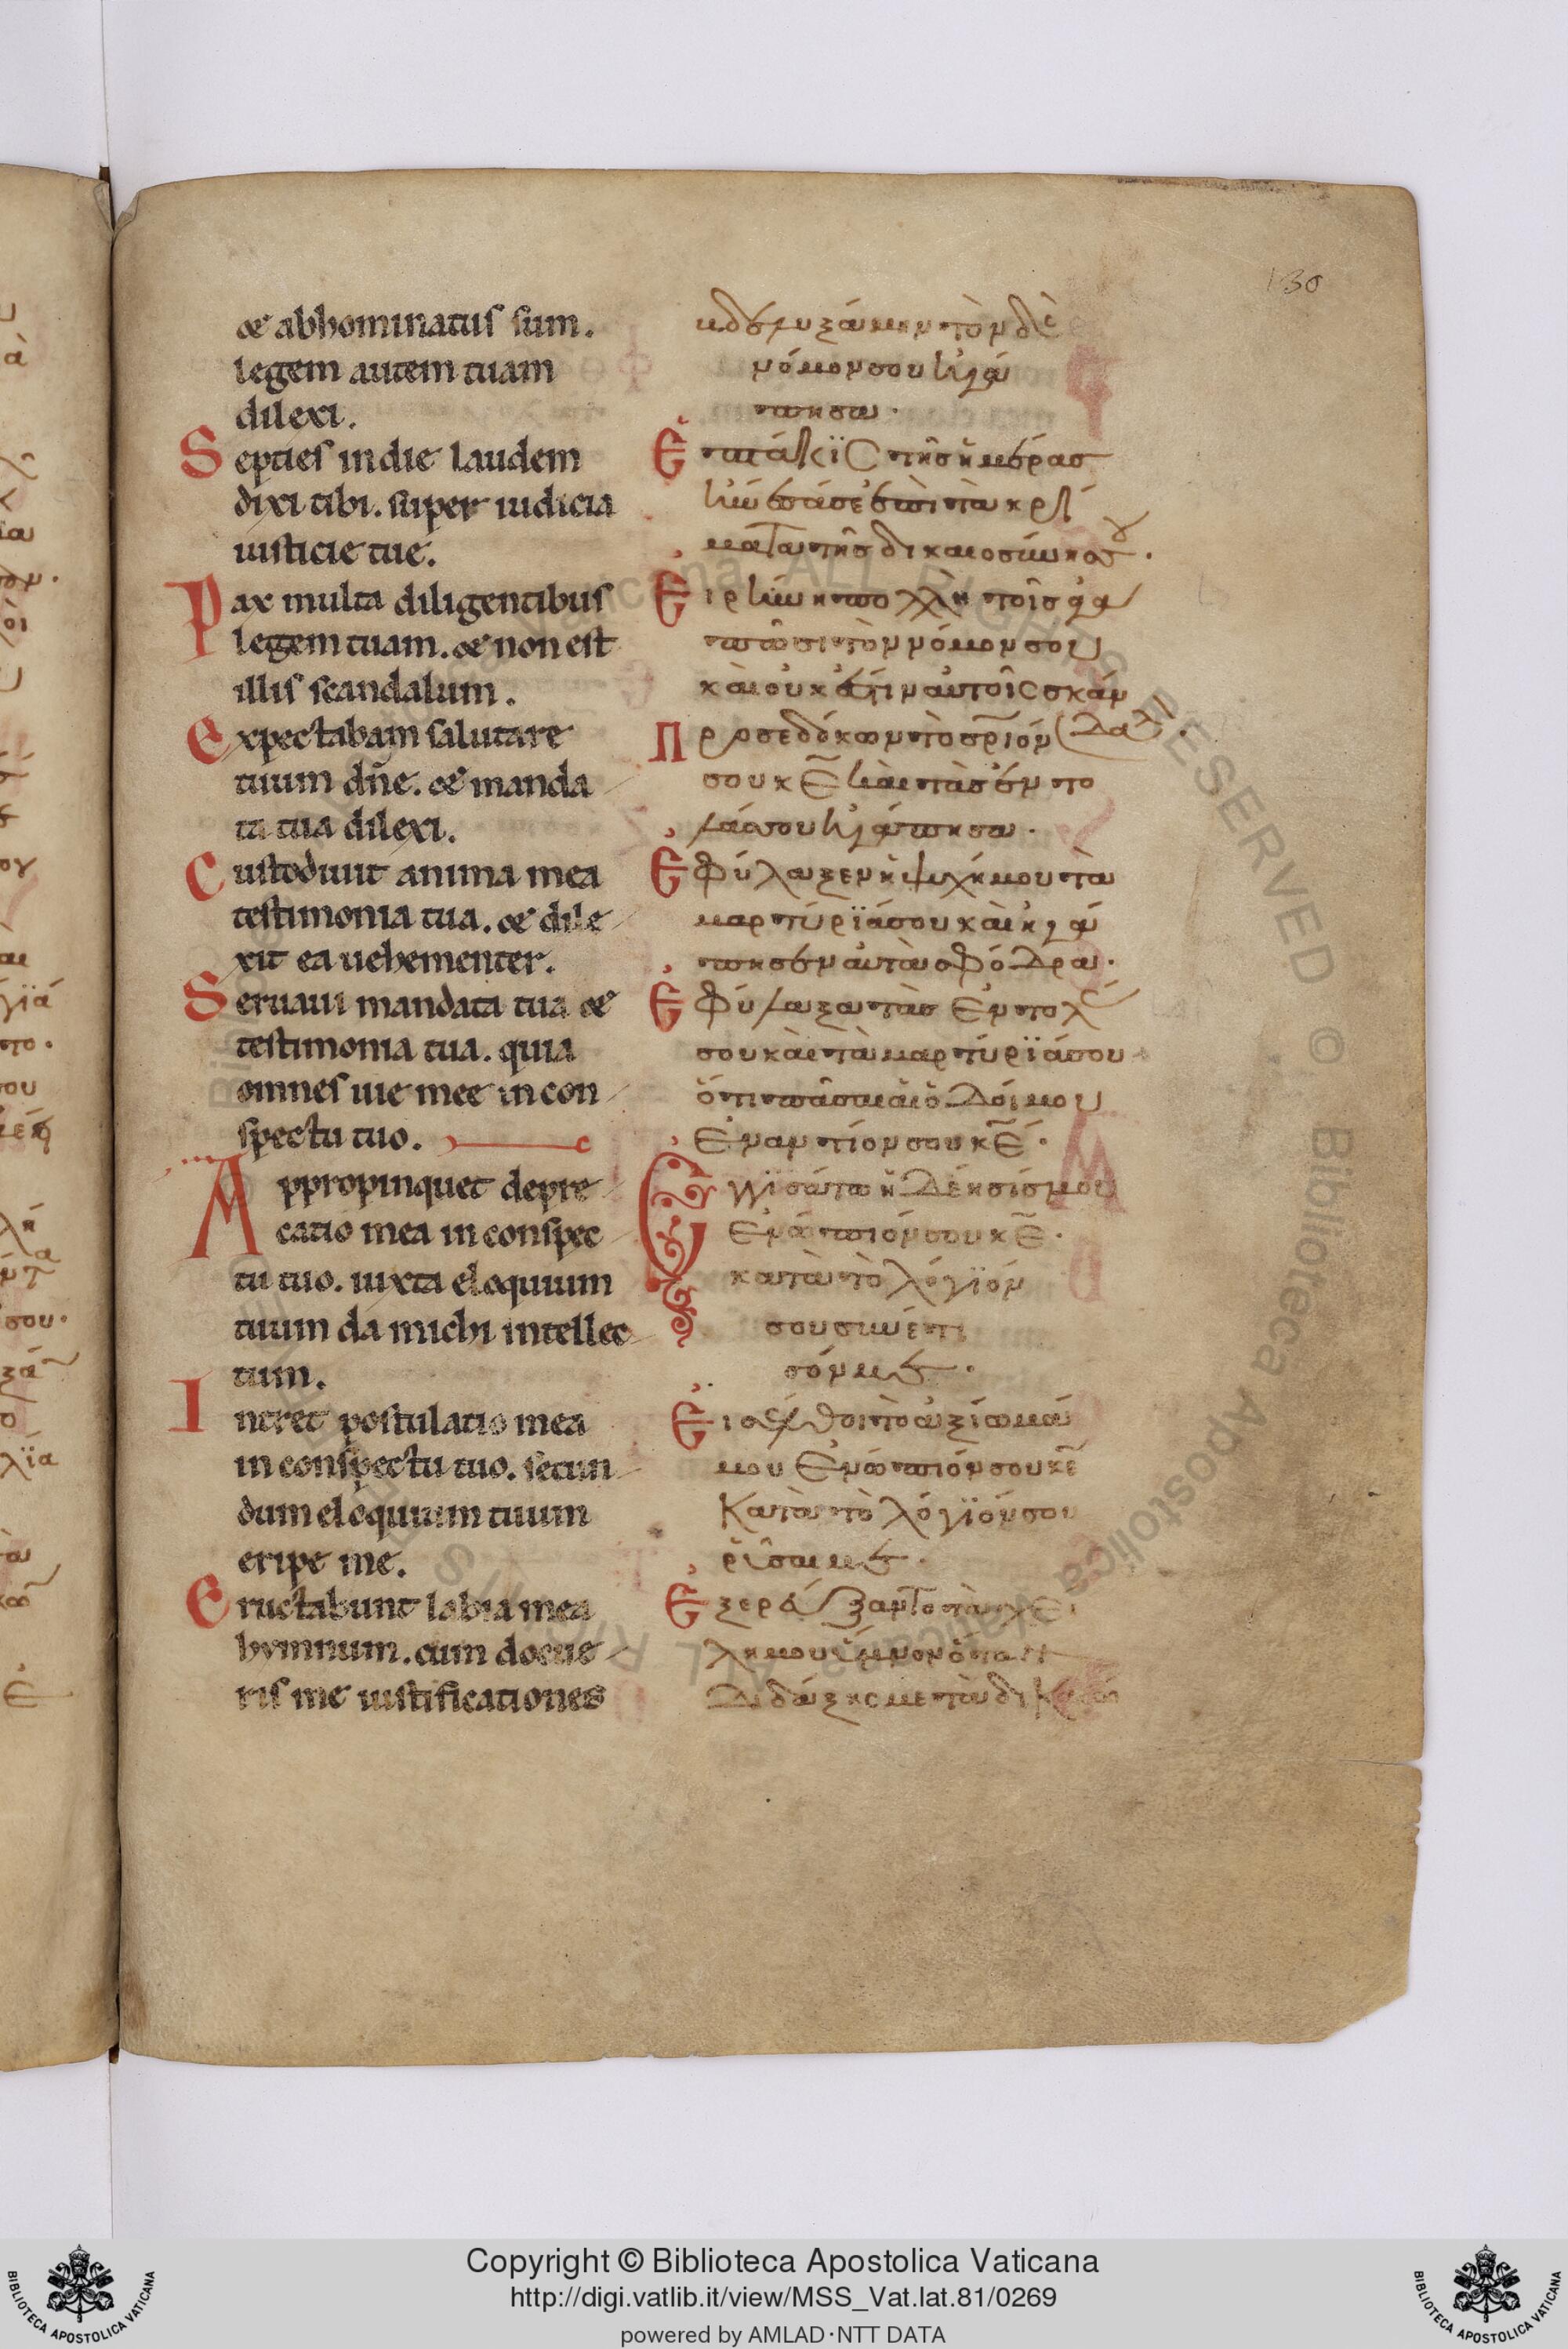 130
& abhominatus sum.
legem autem tuam
dilexi.
Septies in die laudem
dixi tibi. super iudicia
iusticie tue.
Pax multa diligentibus
legem tuam. & non est
illis scandalum.
Expectabam salutare
tuum dñe. & manda
ta tua dilexi.
Custodiuit anima mea
testimonia tua. & dile
xit ea uehementer.
Seruaui mandata tua &
testimonia tua. quia
omnes uie mee in con
spectu tuo.
Appropinquet depre
catio mea in conspec
tu tuo. iuxta eloquium
tuum da michi intellec
tum.
Intret postulatio mea
in conspectu tuo. secun
dum eloquium tuum
eripe me.
Eructabunt labia mea
hymnum. cum docue
ris me iustificationes
τὸν δὲ
νόμον σου ἠγά
πησα.
Ἑπτάκϊς τῆς ἡμέρας
ἤνεσά σε ἐπὶ τὰ κρί
ματα τῆς δικαιοσύνης.
Εἰρήνη πολλὴ τοῖς ἀγα
πῶσι τὸν νόμον σου
καὶ οὐκ ἔστιν αὐτοῖς σκάν
δαλ
Προσεδόκων τὸ σρ̅ιόν
σου κε̅ καὶ τὰς ἐντο
λάς σου ἠγάπησα.
Ἐφύλαξεν ἡ ψυχή μου τὰ
μαρτύρϊά σου καὶ ἠγά
πησεν αὐτὰ σφόδρα.
Ἐφύλαξα τὰς ἐντολ
σου καὶ τὰ μαρτύρϊά σου
ὅτι πᾶσαι αἱ ὁδοί μου
ἐναντίον σου κε̅.
Ἐγγϊσάτω ἡ δέησίς μου
ἐνώπιόν σου κε̅.
κατὰ τὸ λόγϊόν
σου συνέτι
σόν με.
Εἰσέλθοι τὸ ἀξίωμά
μου ἐνώπιόν σου κε̅
Κατὰ τὸ λόγϊόν σου
ῥῦσαί με.
Ἐξερεύξαντο τὰ χεί
λη μου ὕμνον ὅταν
διδάξης με τὰ δικαι
Copyright © Biblioteca Apostolica Vaticana
http://digi.vatlib.it/view/MSS_Vat.lat.81/0269
powered by AMLAD·NTT DATA
BIBLIOTECA APOSTOLICA VATICANA
BIBLIOTECA APOSTOLICA VATICANA